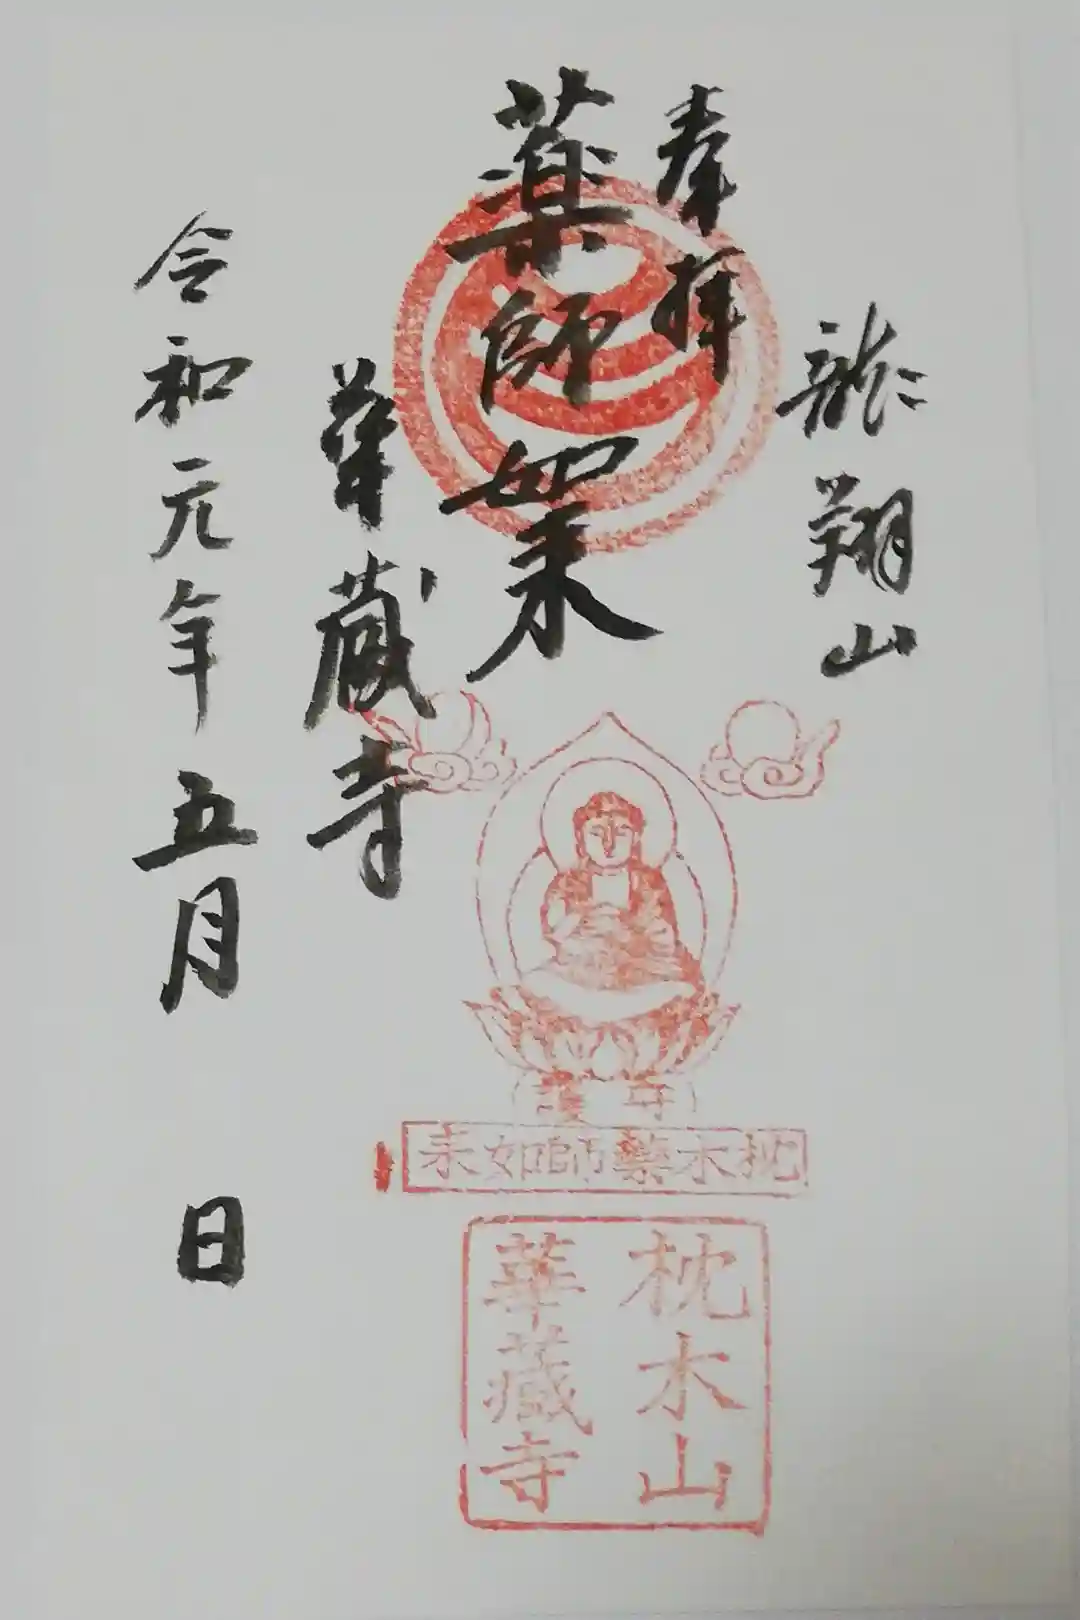 龍翔山
奉拝
薬師如来
華蔵寺
令和元年五月 日
護寺
枕木薬師如来
枕木山
華蔵寺